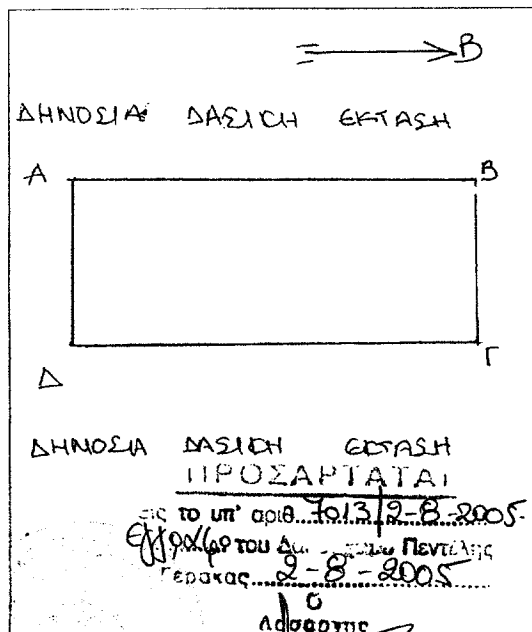 Β
ΔΗΜΟΣΙΑ ΔΑΣΙΚΗ ΕΚΤΑΣΗ
Α Β
Δ Γ
ΔΗΜΟΣΙΑ ΔΑΣΙΚΗ ΕΚΤΑΣΗ
ΠΡΟΣΑΡΤΑΤΑΙ
εις το υπ' αριθ. 7013/2-8-2005
έγγραφο του Πεντέλης
Γέρακας 2-8-2005
Ο
Δασάρχης